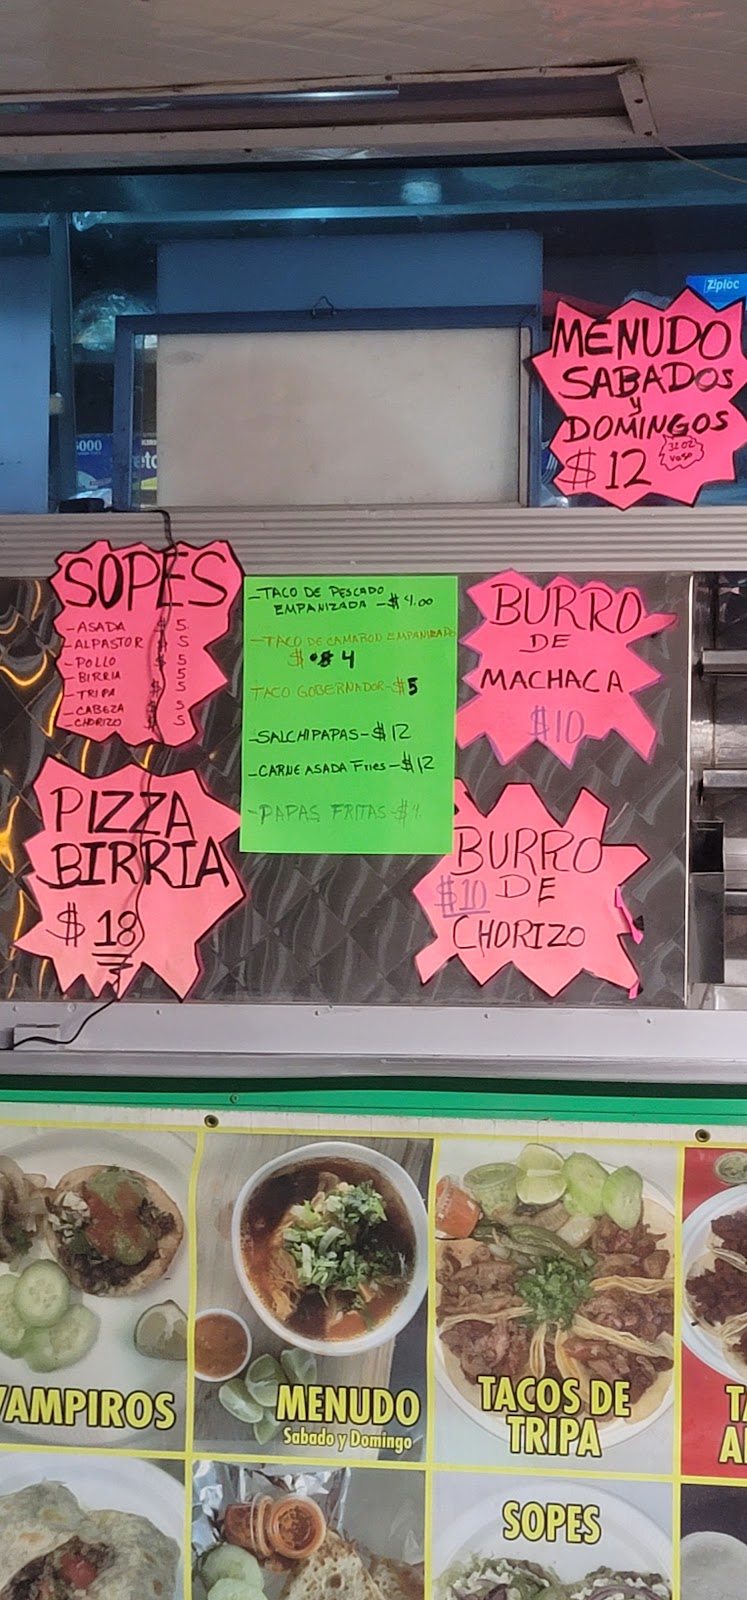 Ziploc
MENUDO
SABADOS
y
DOMINGOS
$12
32 oz
vaso
SOPES
-ASADA $ 5
-ALPASTOR $ 5
-POLLO $ 5
-BIRRIA 5
-TRIPA $ 5
-CABEZA $ 5
-CHORIZO $ 5
-TACO DE PESCADO
EMPANIZADA -$4.00
-TACO DE CAMARON EMPANIZADO
$ 4
TACO GOBERNADOR-$5
-SALCHIPAPAS-$12
-CARNE ASADA Fries-$12
-PAPAS FRITAS-$4
BURRO
DE
MACHACA
$10
PIZZA
BIRRIA
$18
BURRO
$10 DE
CHORIZO
VAMPIROS
MENUDO
Sabado y Domingo
TACOS DE
TRIPA
SOPES